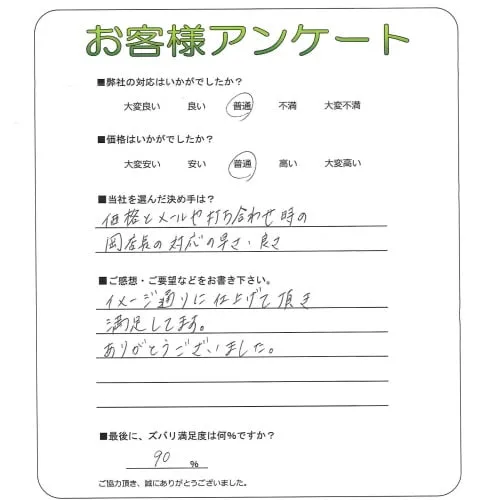 お客様アンケート
■弊社の対応はいかがでしたか？
大変良い 良い 普通 不満 大変不満
■価格はいかがでしたか？
大変安い 安い 普通 高い 大変高い
■当社を選んだ決め手は？
価格とメールや打ち合わせ時の
岡店長の対応の早さ・良さ
■ご感想・ご要望などをお書き下さい。
イメージ通りに仕上げて頂き
満足してます。
ありがとうございました。
■最後に、ズバリ満足度は何％ですか？
90 %
ご協力頂き、誠にありがとうございました。